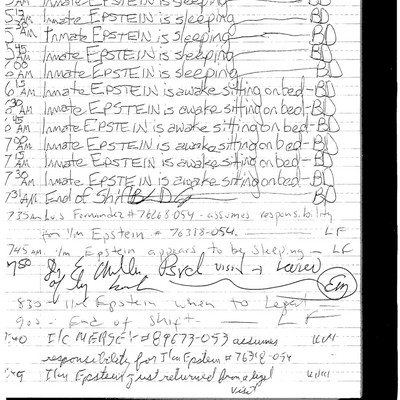 5 AM Inmate EPSTEIN is sleeping BD
5 15 AM Inmate EPSTEIN is sleeping BD
5 30 AM Inmate EPSTEIN is sleeping BD
5 45 AM Inmate EPSTEIN is sleeping BD
6 00 AM Inmate EPSTEIN is sleeping BD
6 15 AM Inmate EPSTEIN is awake sitting on bed - BD
30 AM Inmate EPSTEIN is awake sitting on bed - BD
45 AM Inmate EPSTEIN is awake sitting on bed - BD
7 00 AM Inmate EPSTEIN is awake sitting on bed - BD
7 15 AM Inmate EPSTEIN is awake sitting on bed - BD
7 30 AM Inmate EPSTEIN is awake sitting on bed - BD
7 31 AM End of Shift
735 AM Luis Fernandez # 76268-054 - assumes responsibility
for I/m Epstein # 76318-054. LF
745 AM. I/m Epstein appears to be sleeping - LF
750 Psych visit
EM
830 - I/m Epstein when to Legal
900 - End of Shift - LF
I/C # 89673-053 assumes
responsibilite for I/m Epstein # 76318-054
I/m Epstein just returned from a legal
visit